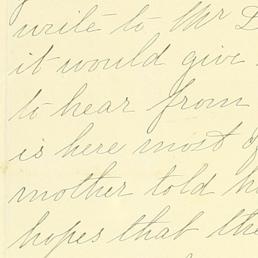 write to Mr
it would give
to hear from
is here most
mother told
hopes that the